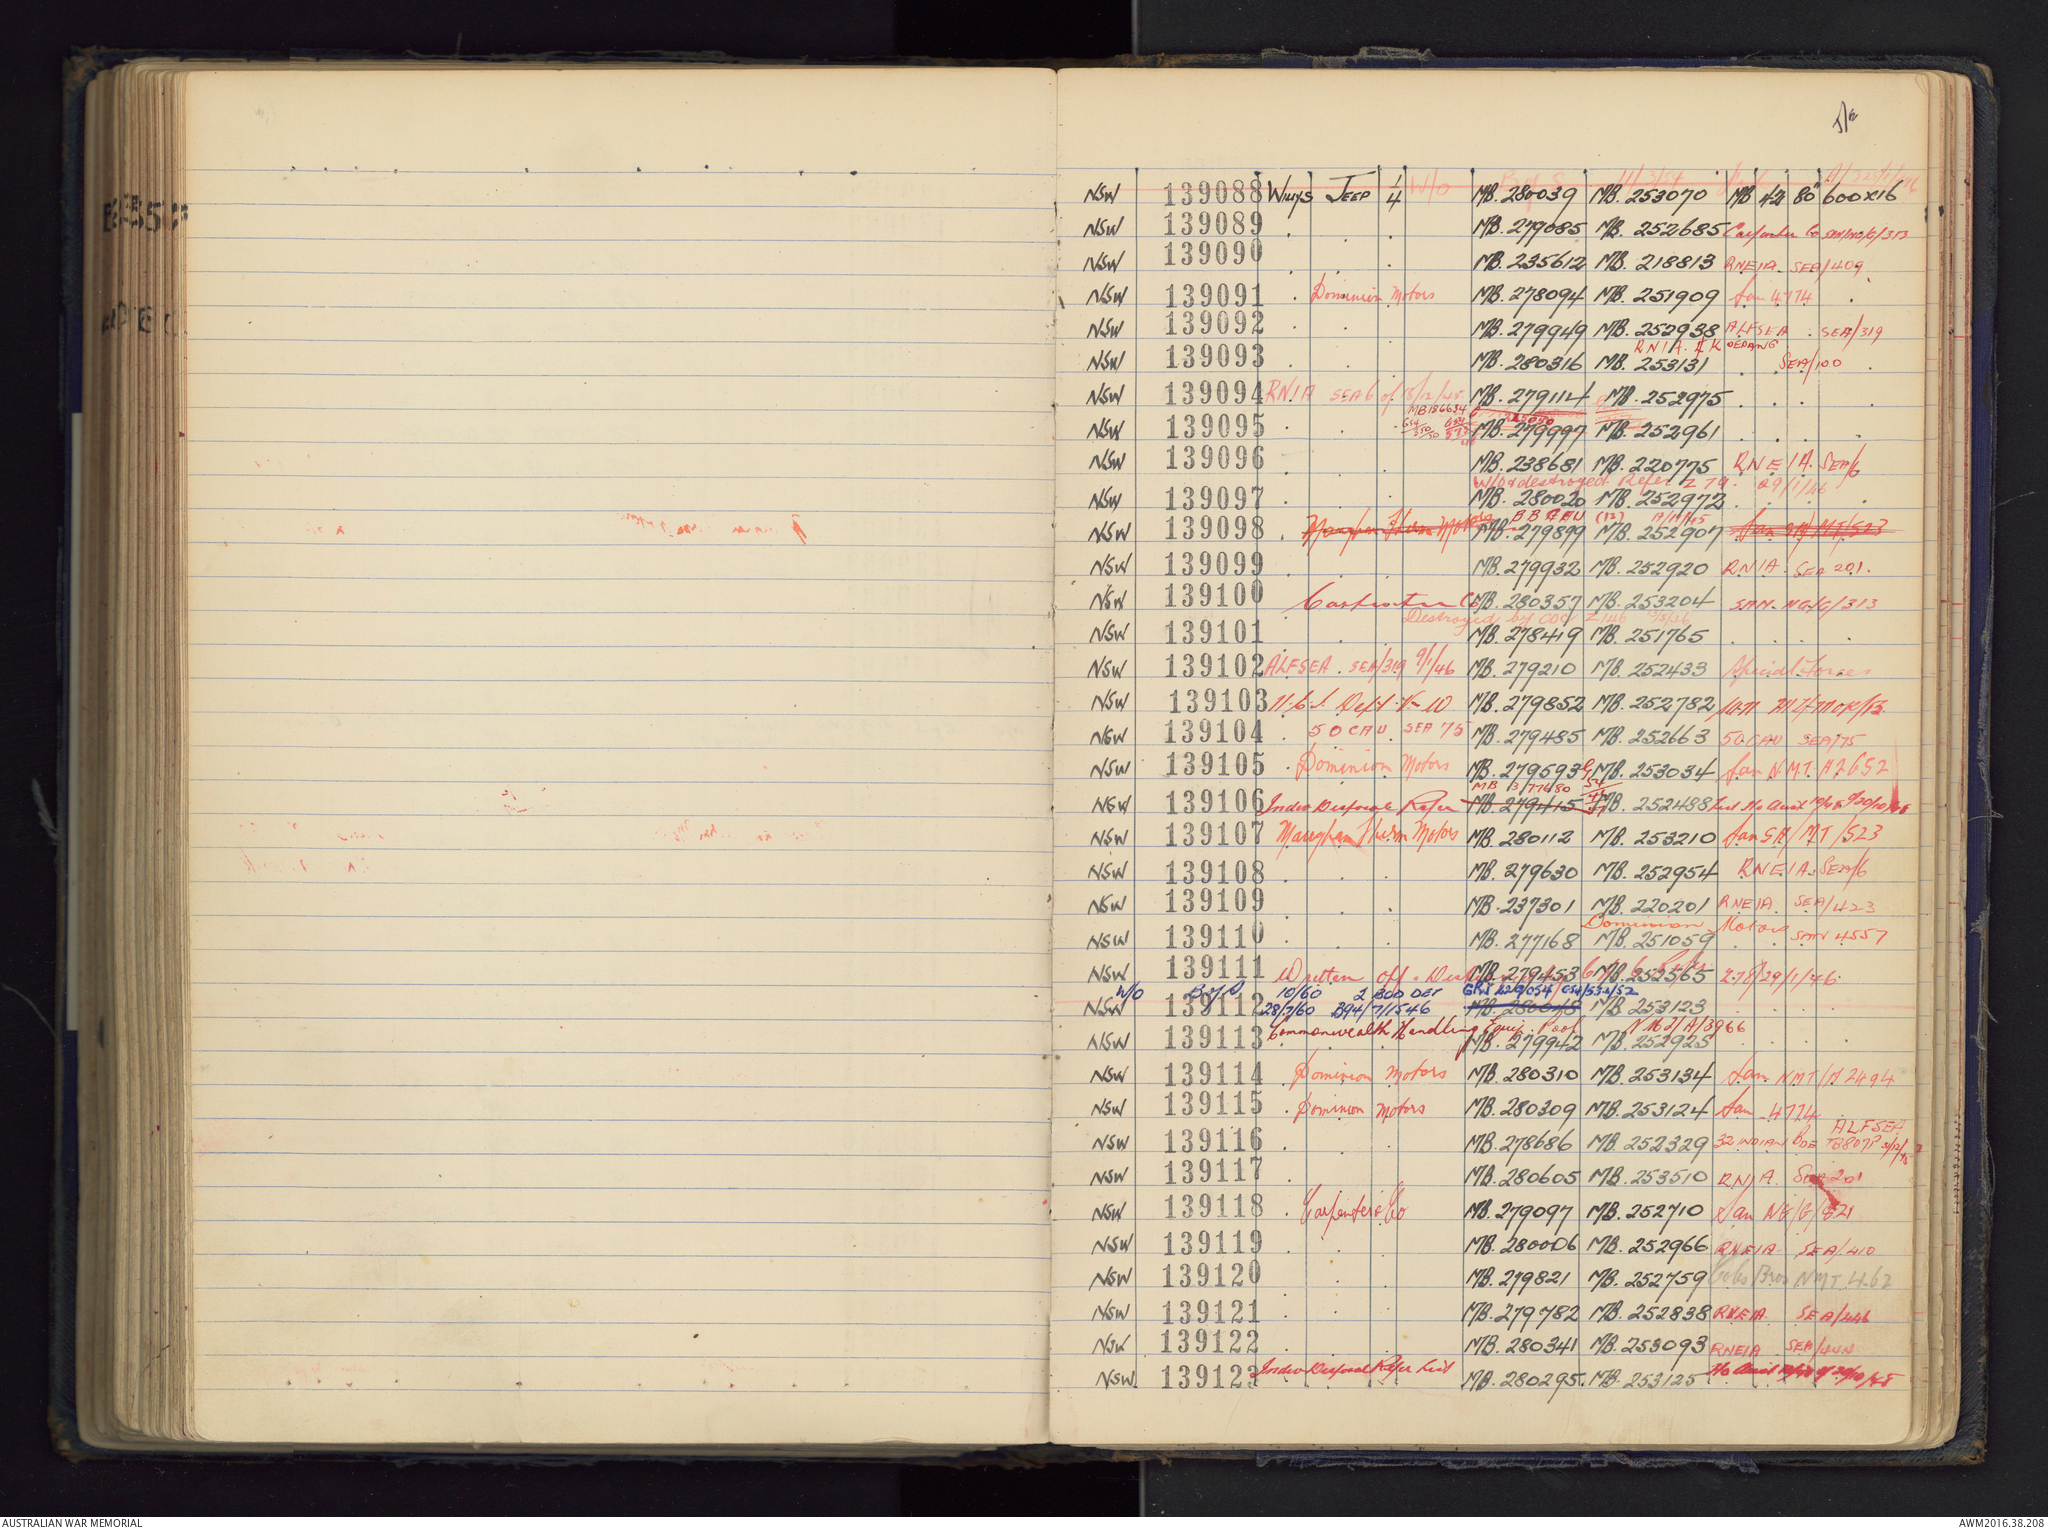 NSW 139088 WILLYS JEEP 1/4 W/O MB. 280039 MB. 253070 MB 42 80" 600x16
NSW 139089 . . . MB. 279085 MB. 252685 Carpenter Co SAN/NG/G/313
NSW 139090 . . . MB. 235612 MB. 218813 RNEIA SEA/409
NSW 139091 . Dominion Motors MB. 278094 MB. 251909 San 4774
NSW 139092 . . . MB. 279949 MB. 252938 ALFSEA . SEA/319
NSW 139093 . . . MB. 280316 MB. 253131 SEA/100
NSW 139094 RNIA SEA 6 of 18/12/45 MB. 279114 MB. 252975
MB186634
NSW 139095 . . . MB. 279997 MB. 252961
NSW 139096 . . . MB. 238681 MB. 220775 RNEIA. SEA/6
W/O & destroyed Refer Z 79. 29/1/46
NSW 139097 . . . MB. 280020 MB. 252972
NSW 139098 . Maughan Thiem Motors MB. 279899 MB. 252907 San SA/MT/523
NSW 139099 . . . MB. 279932 MB. 252920 RNIA. SEA 201.
NSW 139100 Carpenter Co MB. 280357 MB. 253204 SAN. NG/G/313
Destroyed by COO Z146
NSW 139101 . . . MB. 278419 MB. 251765
NSW 139102 ALFSEA. SEA/319 9/1/46 MB. 279210 MB. 252433 Special Forces
NSW 139103 MB. 279852 MB. 252782
NSW 139104 . 50 CAU SEA 75 MB. 279485 MB. 252663 50 CAU SEA/75
NSW 139105 . Dominion Motors MB. 279593 MB. 253034 San N.M.T. A2652
MB 177680
NSW 139106 Indiv Disposal Refer MB. 279415 MB. 252488 List No Aust 10/48 of 20/10/48
NSW 139107 Maughan Thiem Motors MB. 280112 MB. 253210 San SA/MT/523
NSW 139108 . . . MB. 279630 MB. 252954 RNEIA. SEA/6
NSW 139109 . . . MB. 237301 MB. 220201 RNEIA. SEA/423
Dominion Motors
NSW 139110 . . . MB. 277168 MB. 251059 SAN 4557
NSW 139111 Written Off. MB. 279453 MB. 252565 Z78/29/1/46.
W/O B of S 10/60 2 BOD DET
NSW 139112 28/7/60 B94/7/1546 MB. 280048 MB. 253123
Commonwealth Handling Equip. Pool
NSW 139113 . . . MB. 279942 MB. 252925
NSW 139114 . Dominion Motors MB. 280310 MB. 253134 San NMT/A2494
NSW 139115 . Dominion Motors MB. 280309 MB. 253124 San 4774
ALFSEA
NSW 139116 . . . MB. 278686 MB. 252329 32 INDIAN BDE
NSW 139117 . MB. 280605 MB. 253510 RNIA. SEA 201
NSW 139118 . Carpenter Co MB. 279097 MB. 252710 San NG/G/321
NSW 139119 . . . MB. 280006 MB. 252966 RNEIA SEA/410
NSW 139120 . . . MB. 279821 MB. 252759 Coles Bros NMT. 462
NSW 139121 . . . MB. 279782 MB. 252838 RNEIA SEA/446
NSW 139122 . . . MB. 280341 MB. 253093 RNEIA SEA/444
NSW 139123 Indiv Disposal Refer List MB. 280295. MB. 253125
AUSTRALIAN WAR MEMORIAL
AWM2016.38.208